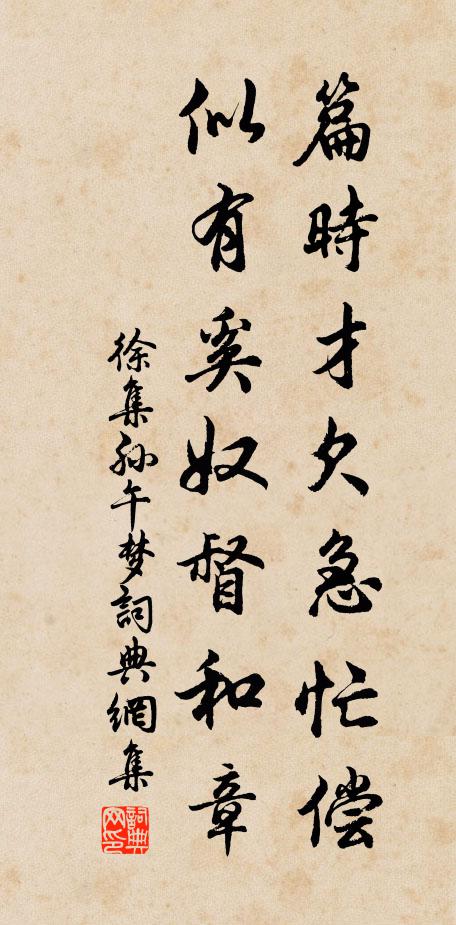 篇時才欠急忙偿
似有奚奴督和章
徐集孙午梦詞典網集
詞典网印